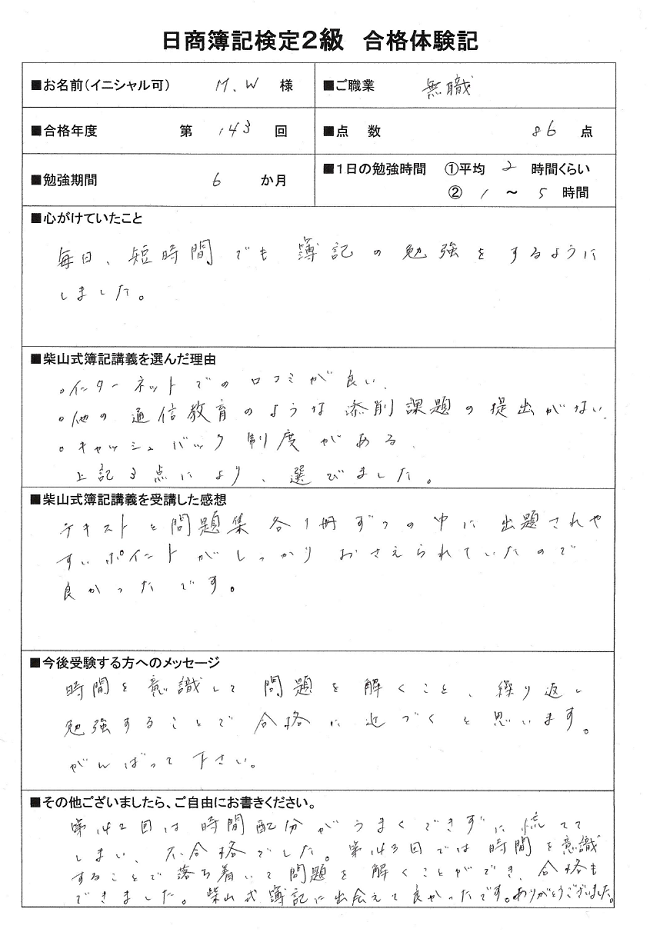 日商簿記検定2級 合格体験記
■お名前(イニシャル可) M.W 様 ■ご職業 無職
■合格年度 第 143 回 ■点数 86 点
■勉強期間 6 か月 ■1日の勉強時間 ①平均 2 時間くらい
② 1 ～ 5 時間
■心がけていたこと
毎日、短時間でも簿記の勉強をするように
しました。
■柴山式簿記講義を選んだ理由
・インターネットでの口コミが良い.
・他の通信教育のような添削課題の提出がない.
・キャッシュバック制度がある.
上記3点により、選びました。
■柴山式簿記講義を受講した感想
テキストと問題集各1冊ずつの中に出題されや
すいポイントがしっかりおさえられていたので
良かったです。
■今後受験する方へのメッセージ
時間を意識して問題を解くこと、繰り返し
勉強することで合格に近づくと思います。
がんばって下さい。
■その他ございましたら、ご自由にお書きください。
第142回は時間配分がうまくできずに慌てて
しまい、不合格でした。第143回では時間を意識
することで落ち着いて問題を解くことができ、合格も
できました。柴山式簿記に出会えて良かったです。ありがとうございました。